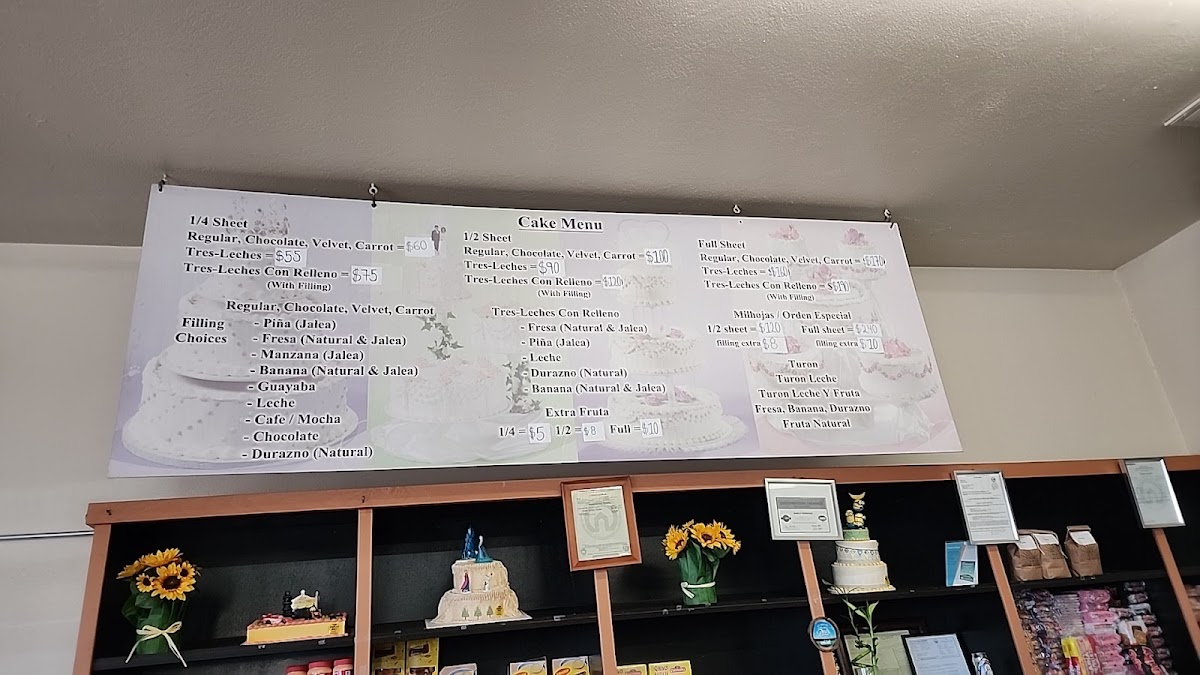 Cake Menu
1/4 Sheet
Regular, Chocolate, Velvet, Carrot = $60
Tres-Leches = $55
Tres-Leches Con Relleno = $75
(With Filling)
Filling
Choices
Regular, Chocolate, Velvet, Carrot
- Piña (Jalea)
- Fresa (Natural & Jalea)
- Manzana (Jalea)
- Banana (Natural & Jalea)
- Guayaba
- Leche
- Cafe / Mocha
- Chocolate
- Durazno (Natural)
1/2 Sheet
Regular, Chocolate, Velvet, Carrot = $100
Tres-Leches = $90
Tres-Leches Con Relleno = $120
(With Filling)
Tres-Leches Con Relleno
- Fresa (Natural & Jalea)
- Piña (Jalea)
- Leche
- Durazno (Natural)
- Banana (Natural & Jalea)
Extra Fruta
1/4 = $5 1/2 = $8 Full = $10
Full Sheet
Regular, Chocolate, Velvet, Carrot = $170
Tres-Leches = $160
Tres-Leches Con Relleno = $190
(With Filling)
Milhojas / Orden Especial
1/2 sheet = $120 Full sheet = $240
filling extra $8 filling extra $10
Turon
Turon Leche
Turon Leche Y Fruta
Fresa, Banana, Durazno
Fruta Natural